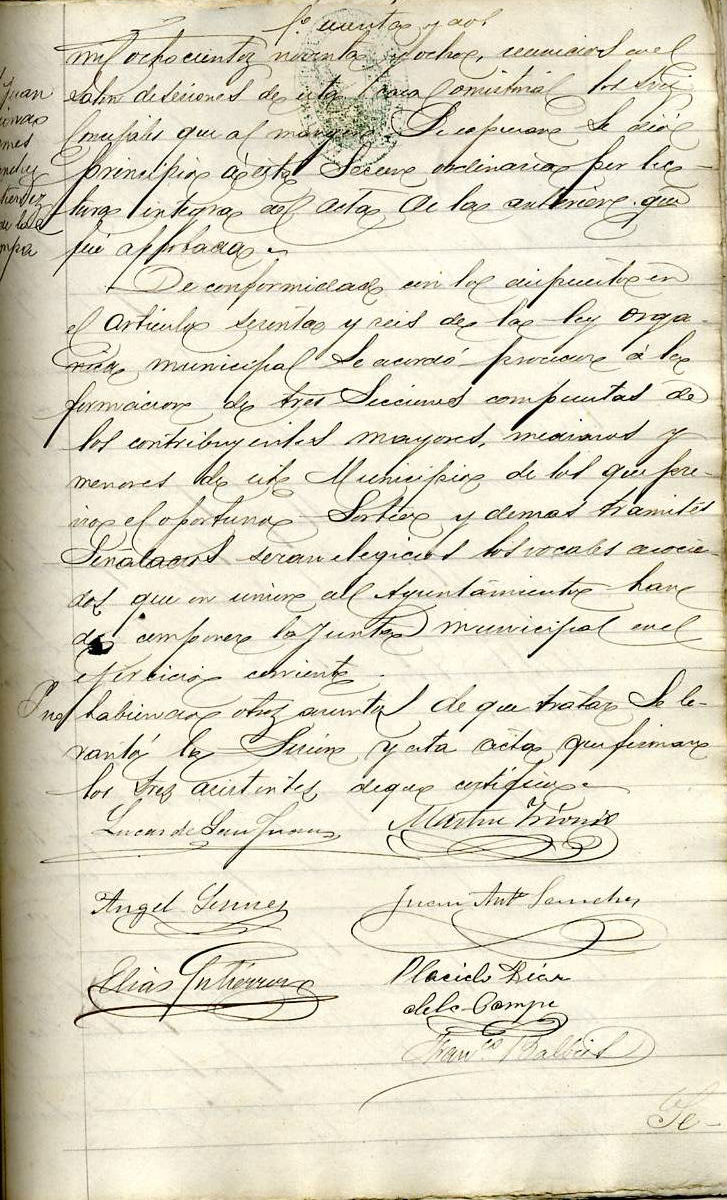 Fº cuarenta y dos
mil ochocientos noventa y ocho, reunidos en el
Juan
salon de sesiones de esta Casa Consistorial los Sres
Concejales que al margen se expresan se dió
principio á esta Sesion ordinaria por lec-
tura integra del acta de la anterior que
de la
fué aprobada.
De conformidad con lo dispuesto en
el articulo sesenta y seis de la ley orga-
nica municipal se acordó proceder á la
formacion de tres Secciones compuestas de
los contribuyentes mayores, medianos y
menores de este Municipio de los que pre-
vio el oportuno Sorteo y demas tramites
Señalados seran elegidos los vocales asocia-
dos que en union del Ayuntamiento han
de componer la Junta municipal en el
ejercicio corriente.
Y no habiendo otros asuntos de que tratar se le-
vantó la Sesion y esta acta que firman
los Sres asistentes de que certifico.
Lucas de San Juan Martin
Angel Juan Antº Sanchez
Elias Gutierrez Placido Diaz
dela Campa
Franco
Se-